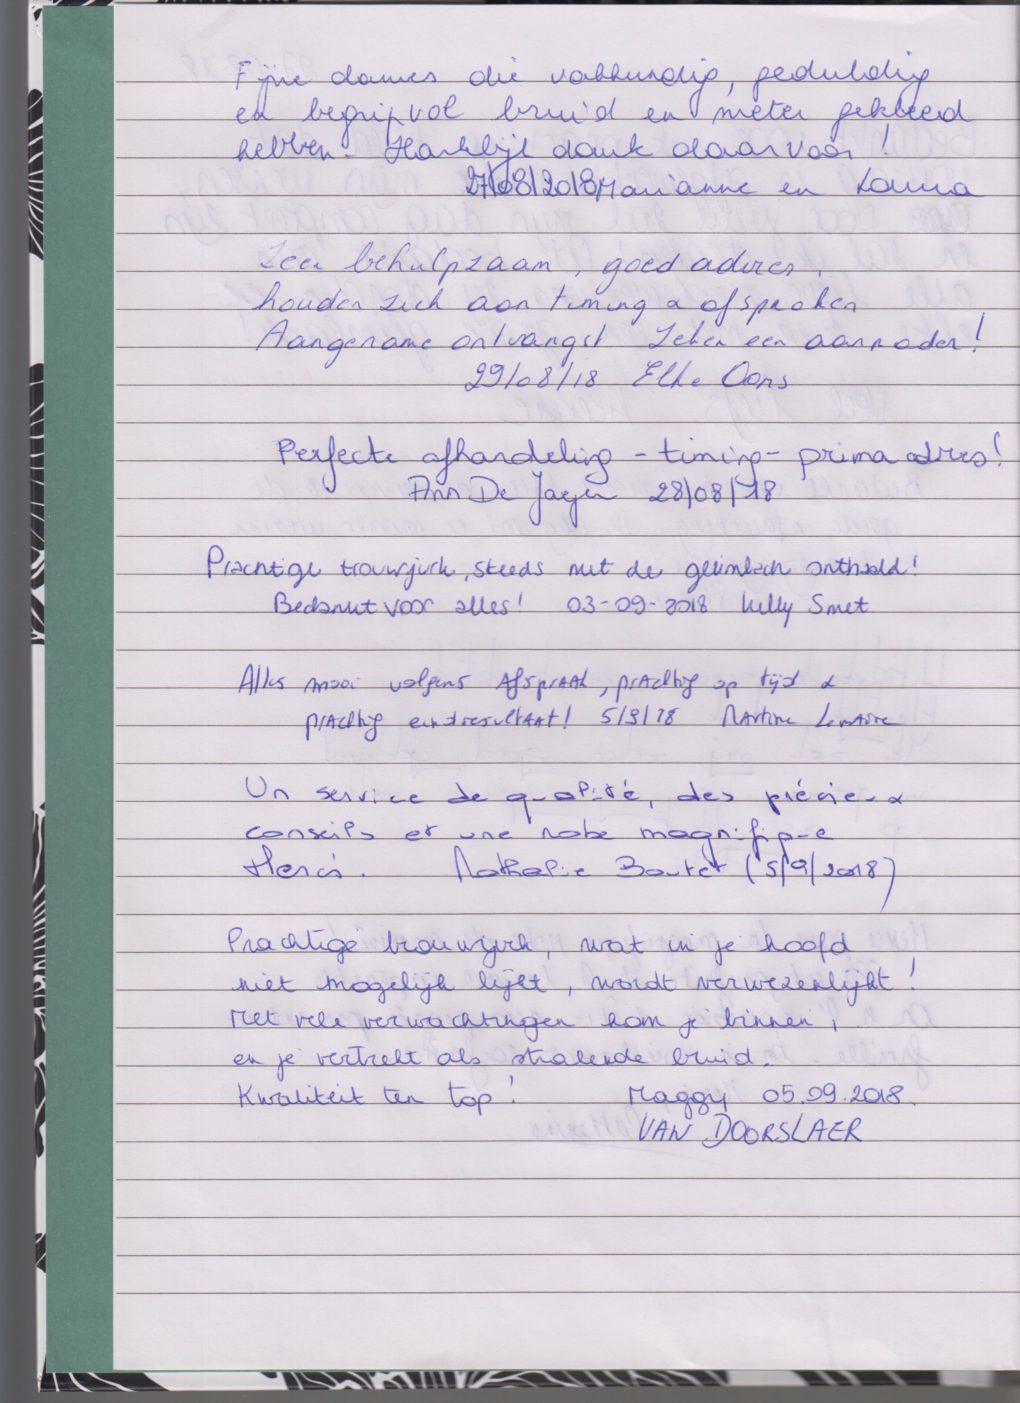 Fijne dames die vakkundig, geduldig
en begripvol bruid en meter gekleed
hebben. Hartelijk dank daarvoor!
27/08/2018 Marianne en
Zeer behulpzaam, goed adres,
houden zich aan timing & afspraken
Aangename ontvangst Zeker een aanrader!
29/08/18 Elke Ooms
Perfecte afhandeling - timing - prima adres!
Ann De Jaeger 28/08/18
Prachtige trouwjurk, steeds met de glimlach onthaald!
Bedankt voor alles! 03-09-2018 Kelly Smet
Alles mooi volgens afspraak, prachtig op tijd &
prachtig eindresultaat! 5/9/18 Martine Lemaire
Un service de qualité, des précieux
conseils et une robe magnifique
Merci. Nathalie Boutet (5/9/2018)
Prachtige trouwjurk, wat in je hoofd
niet mogelijk lijkt, wordt verwezenlijkt!
Met vele verwachtingen kom je binnen,
en je vertrekt als stralende bruid.
Kwaliteit ten top! Maggy 05.09.2018.
VAN DOORSLAER